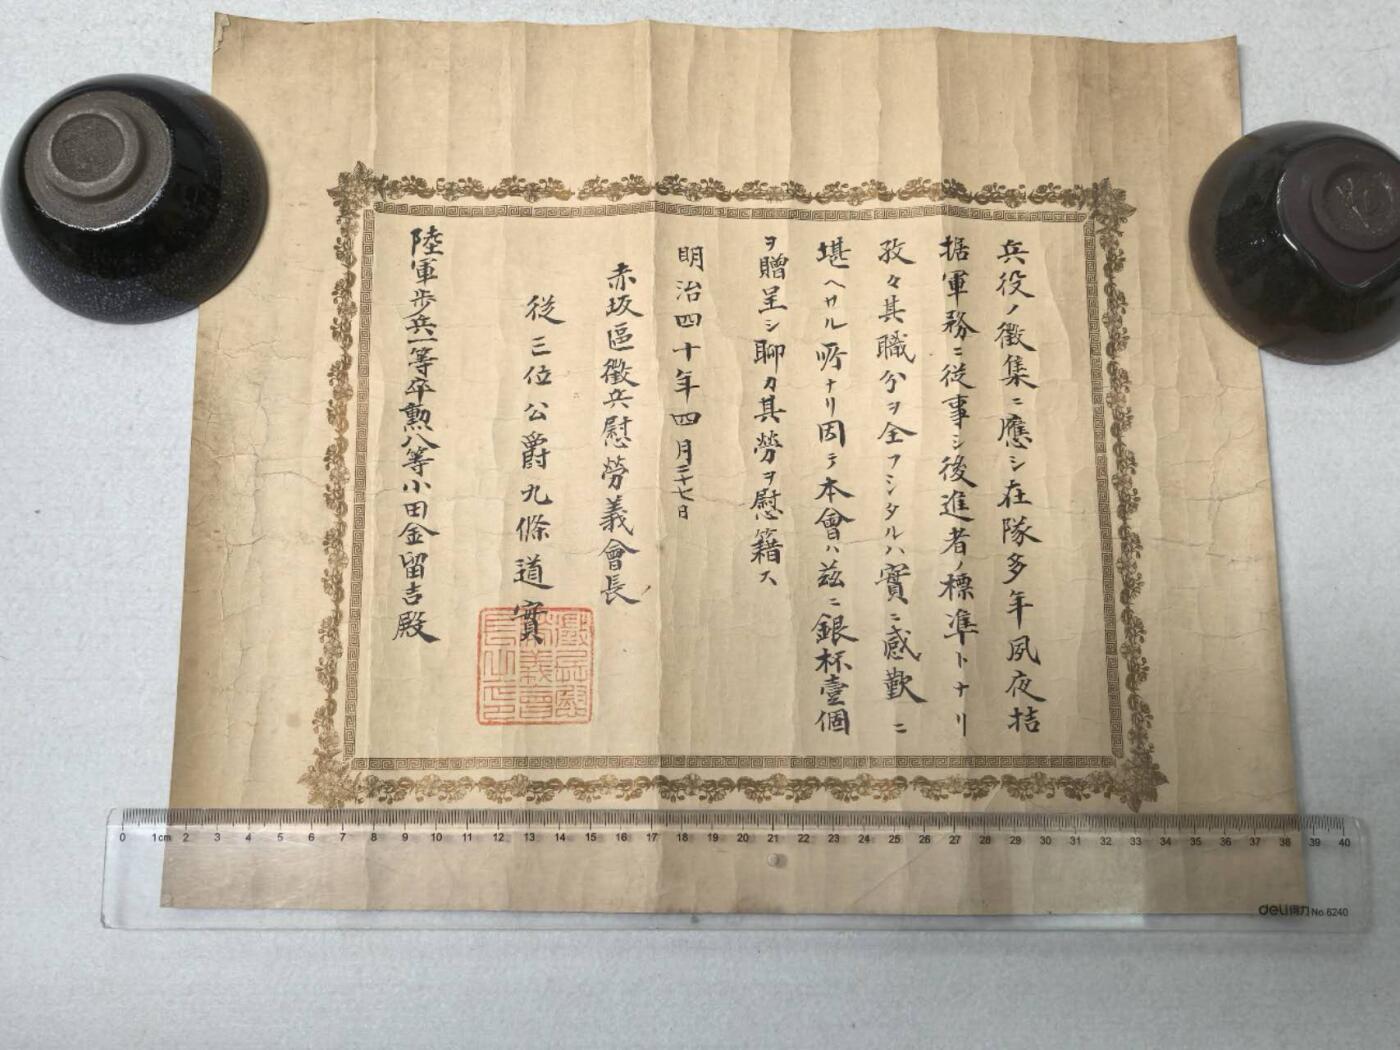 兵役ノ徵集ニ應シ在隊多年夙夜拮
据軍務ニ従事シ後進者ノ標準トナリ
孜々其職分ヲ全フシタルハ實ニ感歎ニ
堪ヘサル所ナリ因テ本會ハ茲ニ銀杯壹個
ヲ贈呈シ聊カ其勞ヲ慰籍ス
明治四十年四月二十七日
赤坂區徵兵慰勞義會長
従三位公爵九條道實
陸軍歩兵一等卒勲八等小田金留吉殿
徵兵慰
勞義會
長之印
0 1cm 2 3 4 5 6 7 8 9 10 11 12 13 14 15 16 17 18 19 20 21 22 23 24 25 26 27 28 29 30 31 32 33 34 35 36 37 38 39 40
deli得力 No.6240